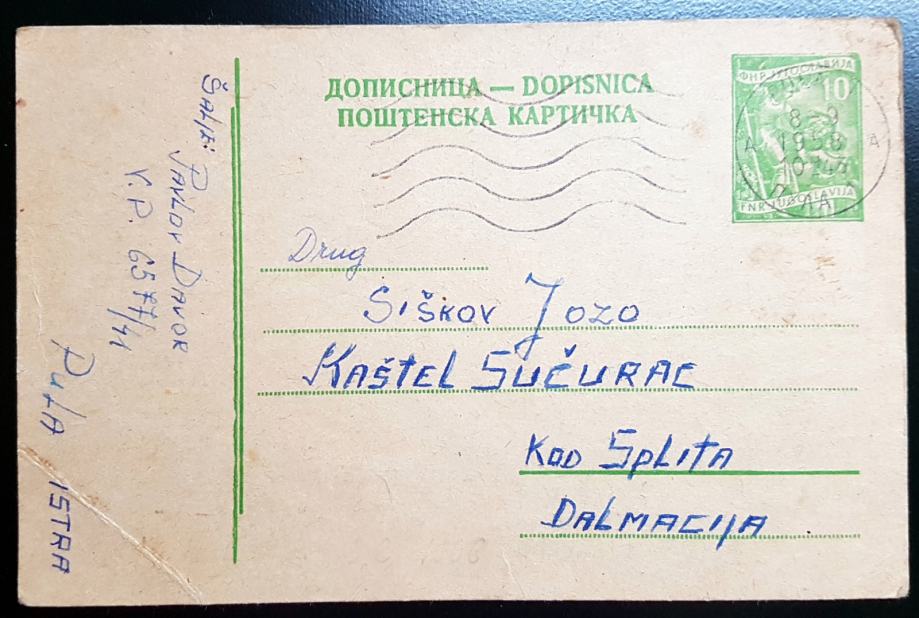 ДОПИСНИЦА — DOPISNICA
ПОШТЕНСКА КАРТИЧКА
ФНР ЈУГОСЛАВИЈА
10
FNR JUGOSLAVIJA
8-9
1958
A A
Drug
SIŠKOV JOZO
KAŠTEL SUČURAC
KOD SPLITA
DALMACIJA
Šalje:
PAVLOV DAVOR
V.P. 6577/41
PULA ISTRA